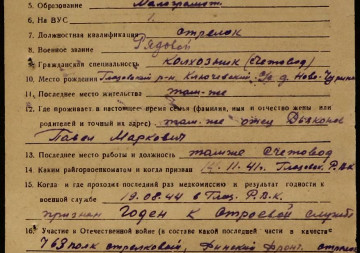 5. Образование Малограмотн.
6. На ВУС 1
7. Должностная квалификация стрелок
8. Военное звание Рядовой
9. Гражданская специальность колхозник (счетовод)
10. Место рождения Глазовский р-н, Ключевский, д. Ново-
11. Последнее место жительства там-же
12. Где проживает в настоящее время семья (фамилия, имя и отчество жены или
родителей и точный их адрес) там-же отец Дьяконов
Павел Маркович
13. Последнее место работы и должность там же счетовод
14. Каким райгорвоенкоматом и когда призван 11.41г. Глазовск. Р.В.К.
15. Когда и где проходил последний раз медкомиссию и результат годности к
военной службе 19.08.44 в Глаз. Р.В.К.
признан Годен к строевой службе
16. Участие в Отечественной войне (в составе какой последней части и качестве
763 полк стрелковый, Финский фронт.